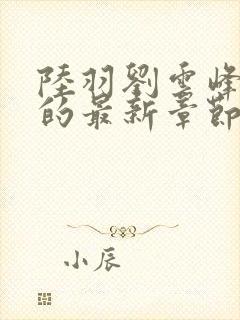 陸羽劉雲峰
的最新章節
小辰